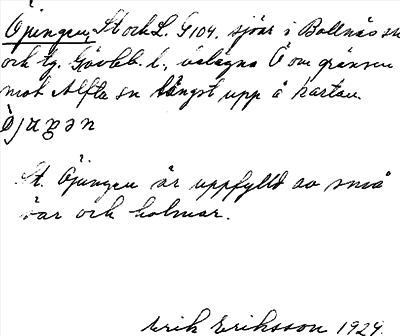 Öjingen, St och L. G104. sjöar i Bollnäs sn
och tg. Gävleb. l., belägna Ö om gränsen
mot Alfta sn längst upp å kartan.
St. Öjingen är uppfylld av små
öar och holmar.
Erik Eriksson 1929.